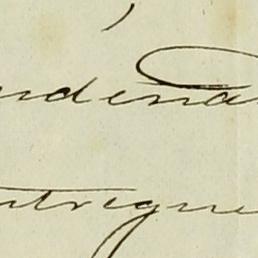 ndena
ntregue